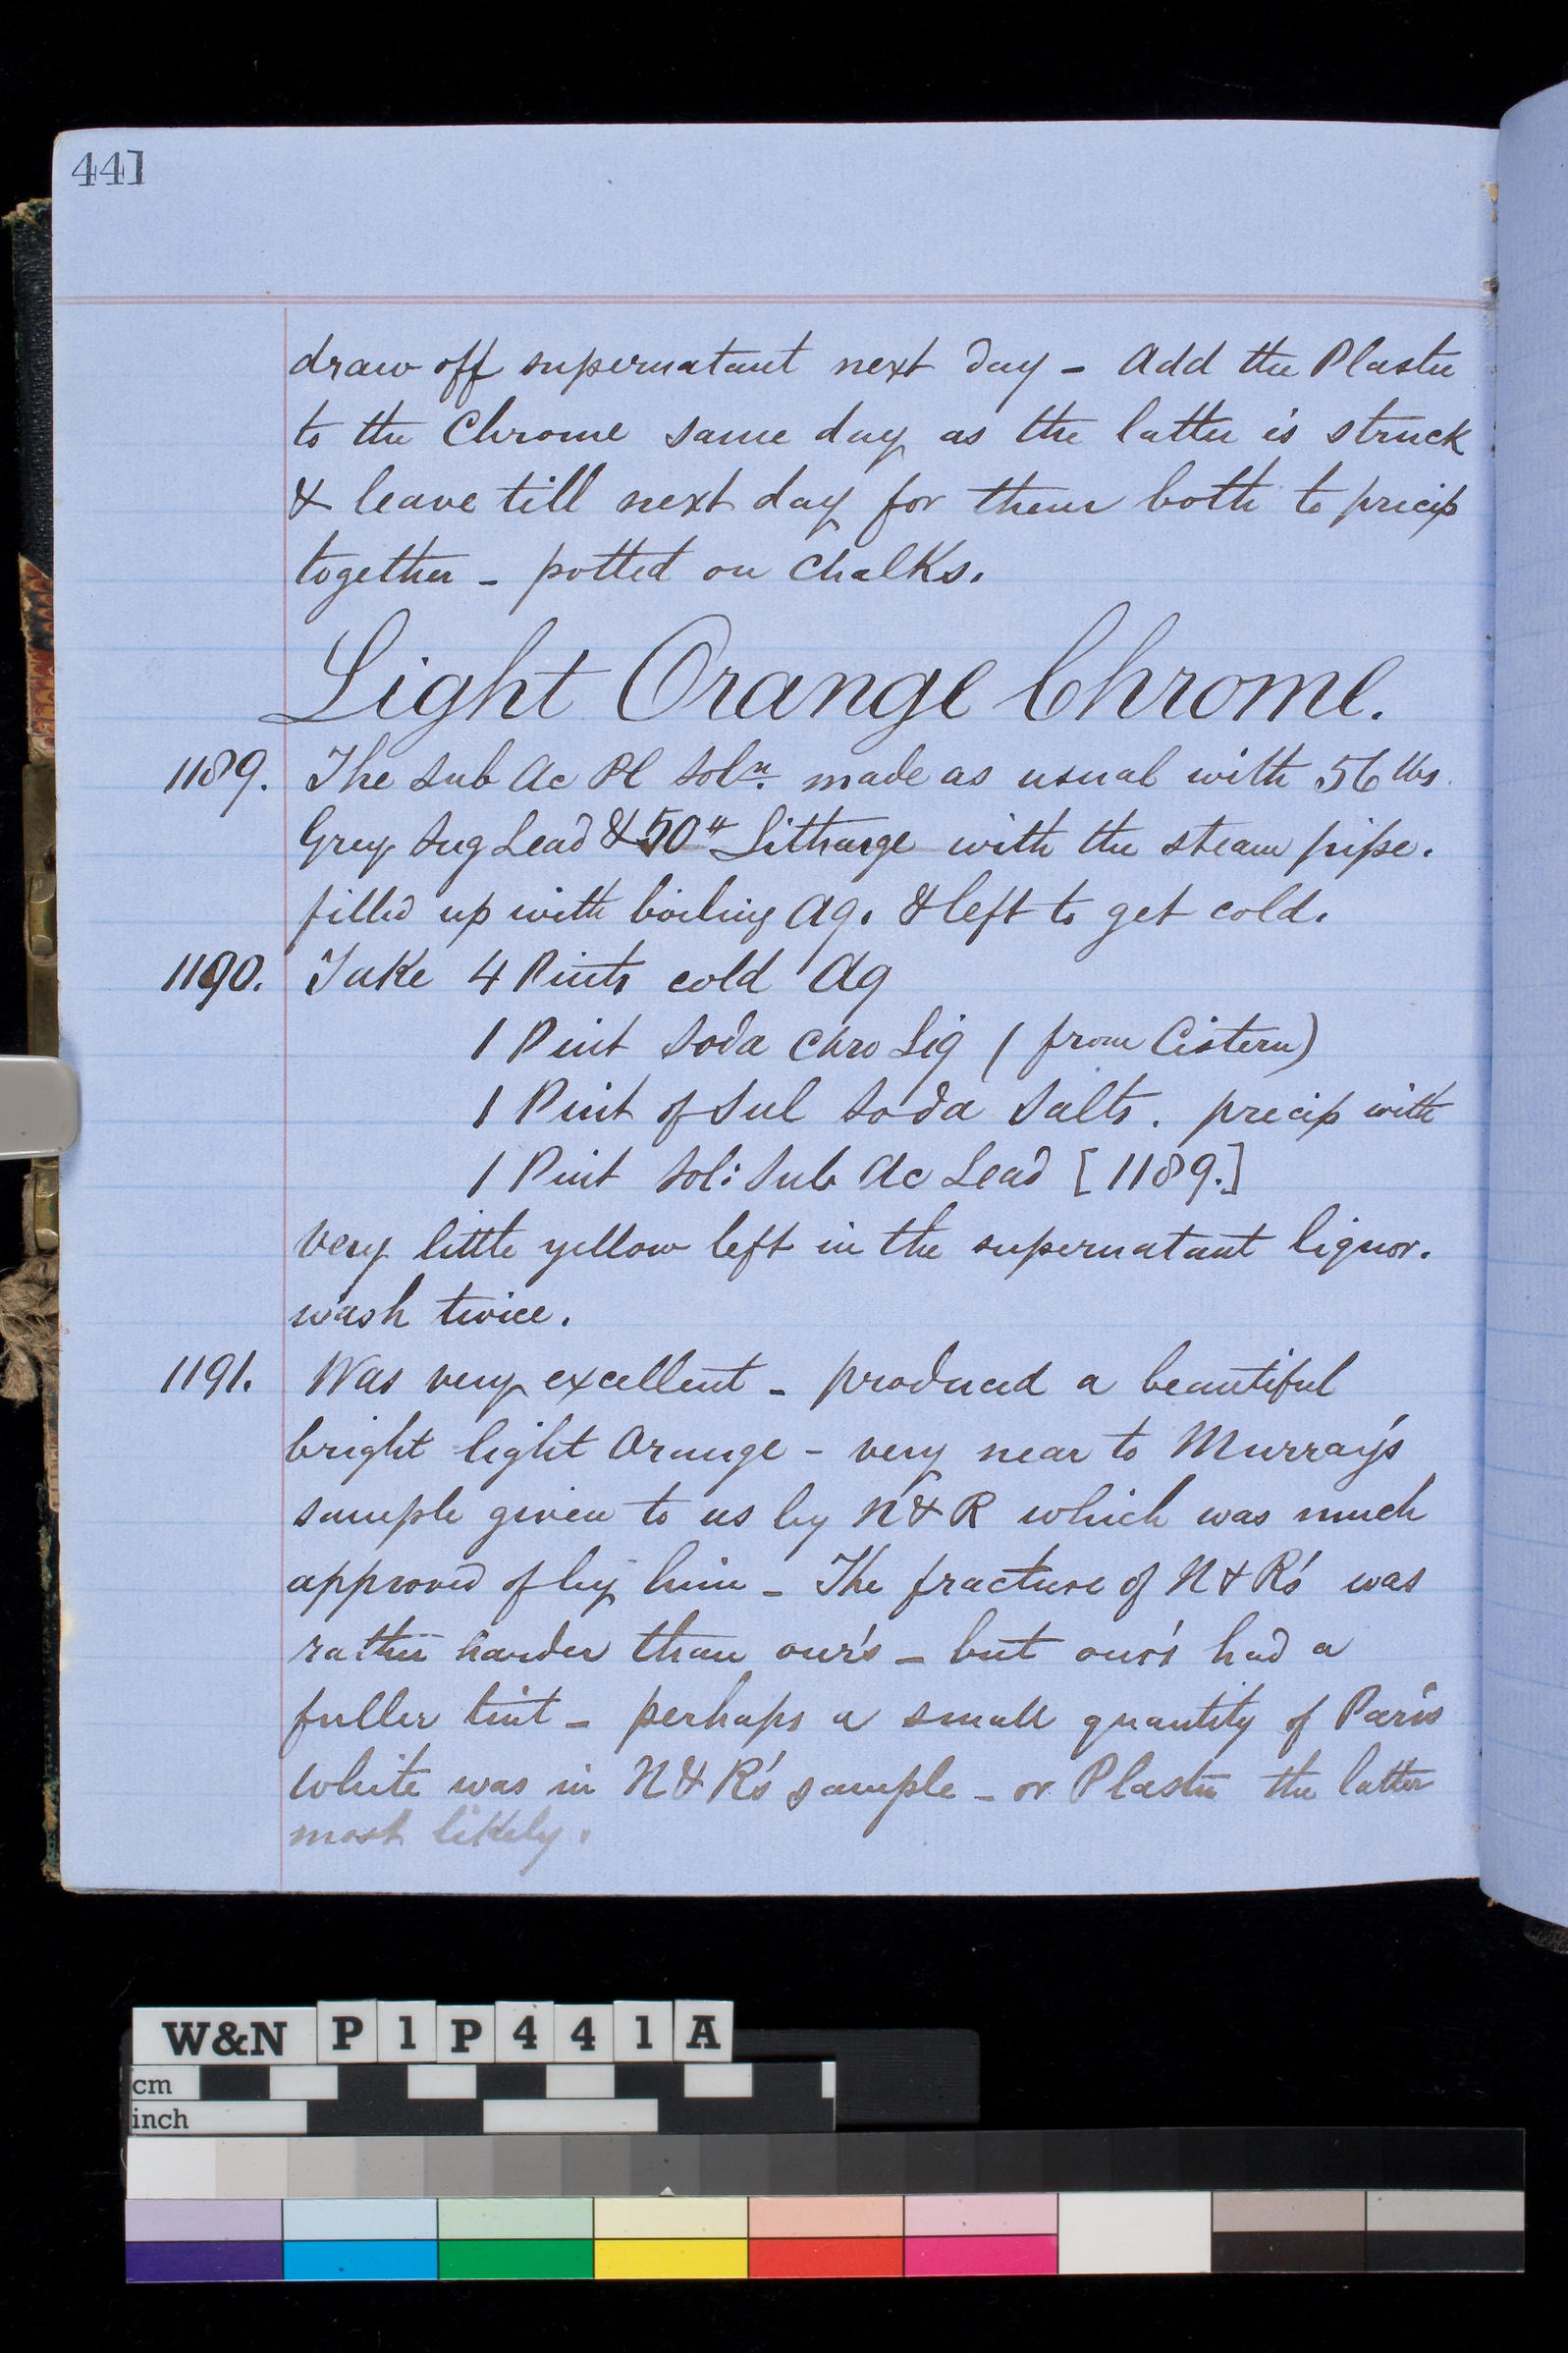 441
draw off supernatant next day - Add the Plaster
to the Chrome same day as the latter is struck
& leave till next day for them both to precip
together - potted on Chalks.
Light Orange Chrome.
1189. The Sub Ac Pl Soln. made as usual with 56 lbs.
Grey Sug Lead & 50" Litharge with the steam pipe.
filled up with boiling Aq. & left to get cold.
1190. Take 4 Pints cold Aq
1 Pint Soda Chro Liq (from Cistern)
1 Pint of Sul Soda Salts. precip with
1 Pint Sol: Sub Ac Lead [1189.]
very little yellow left in the supernatant liquor.
wash twice.
1191. Was very excellent - produced a beautiful
bright light Orange - very near to Murray's
sample given to us by N & R which was much
approved of by him - The fracture of N & R's was
rather harder than our's - but our's had a
fuller tint - perhaps a small quantity of Paris
White was in N & R's sample - or Plaster the latter
most likely.
W&N P1P441A
cm
inch